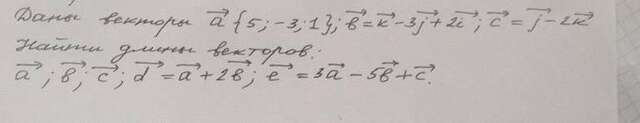 Даны векторы a⃗ {5; -3; 1}; b⃗ = k⃗ - 3j⃗ + 2i⃗; c⃗ = j⃗ - 2k⃗
Найти длины векторов:
a⃗; b⃗; c⃗; d⃗ = a⃗ + 2b⃗; e⃗ = 3a⃗ - 5b⃗ + c⃗.